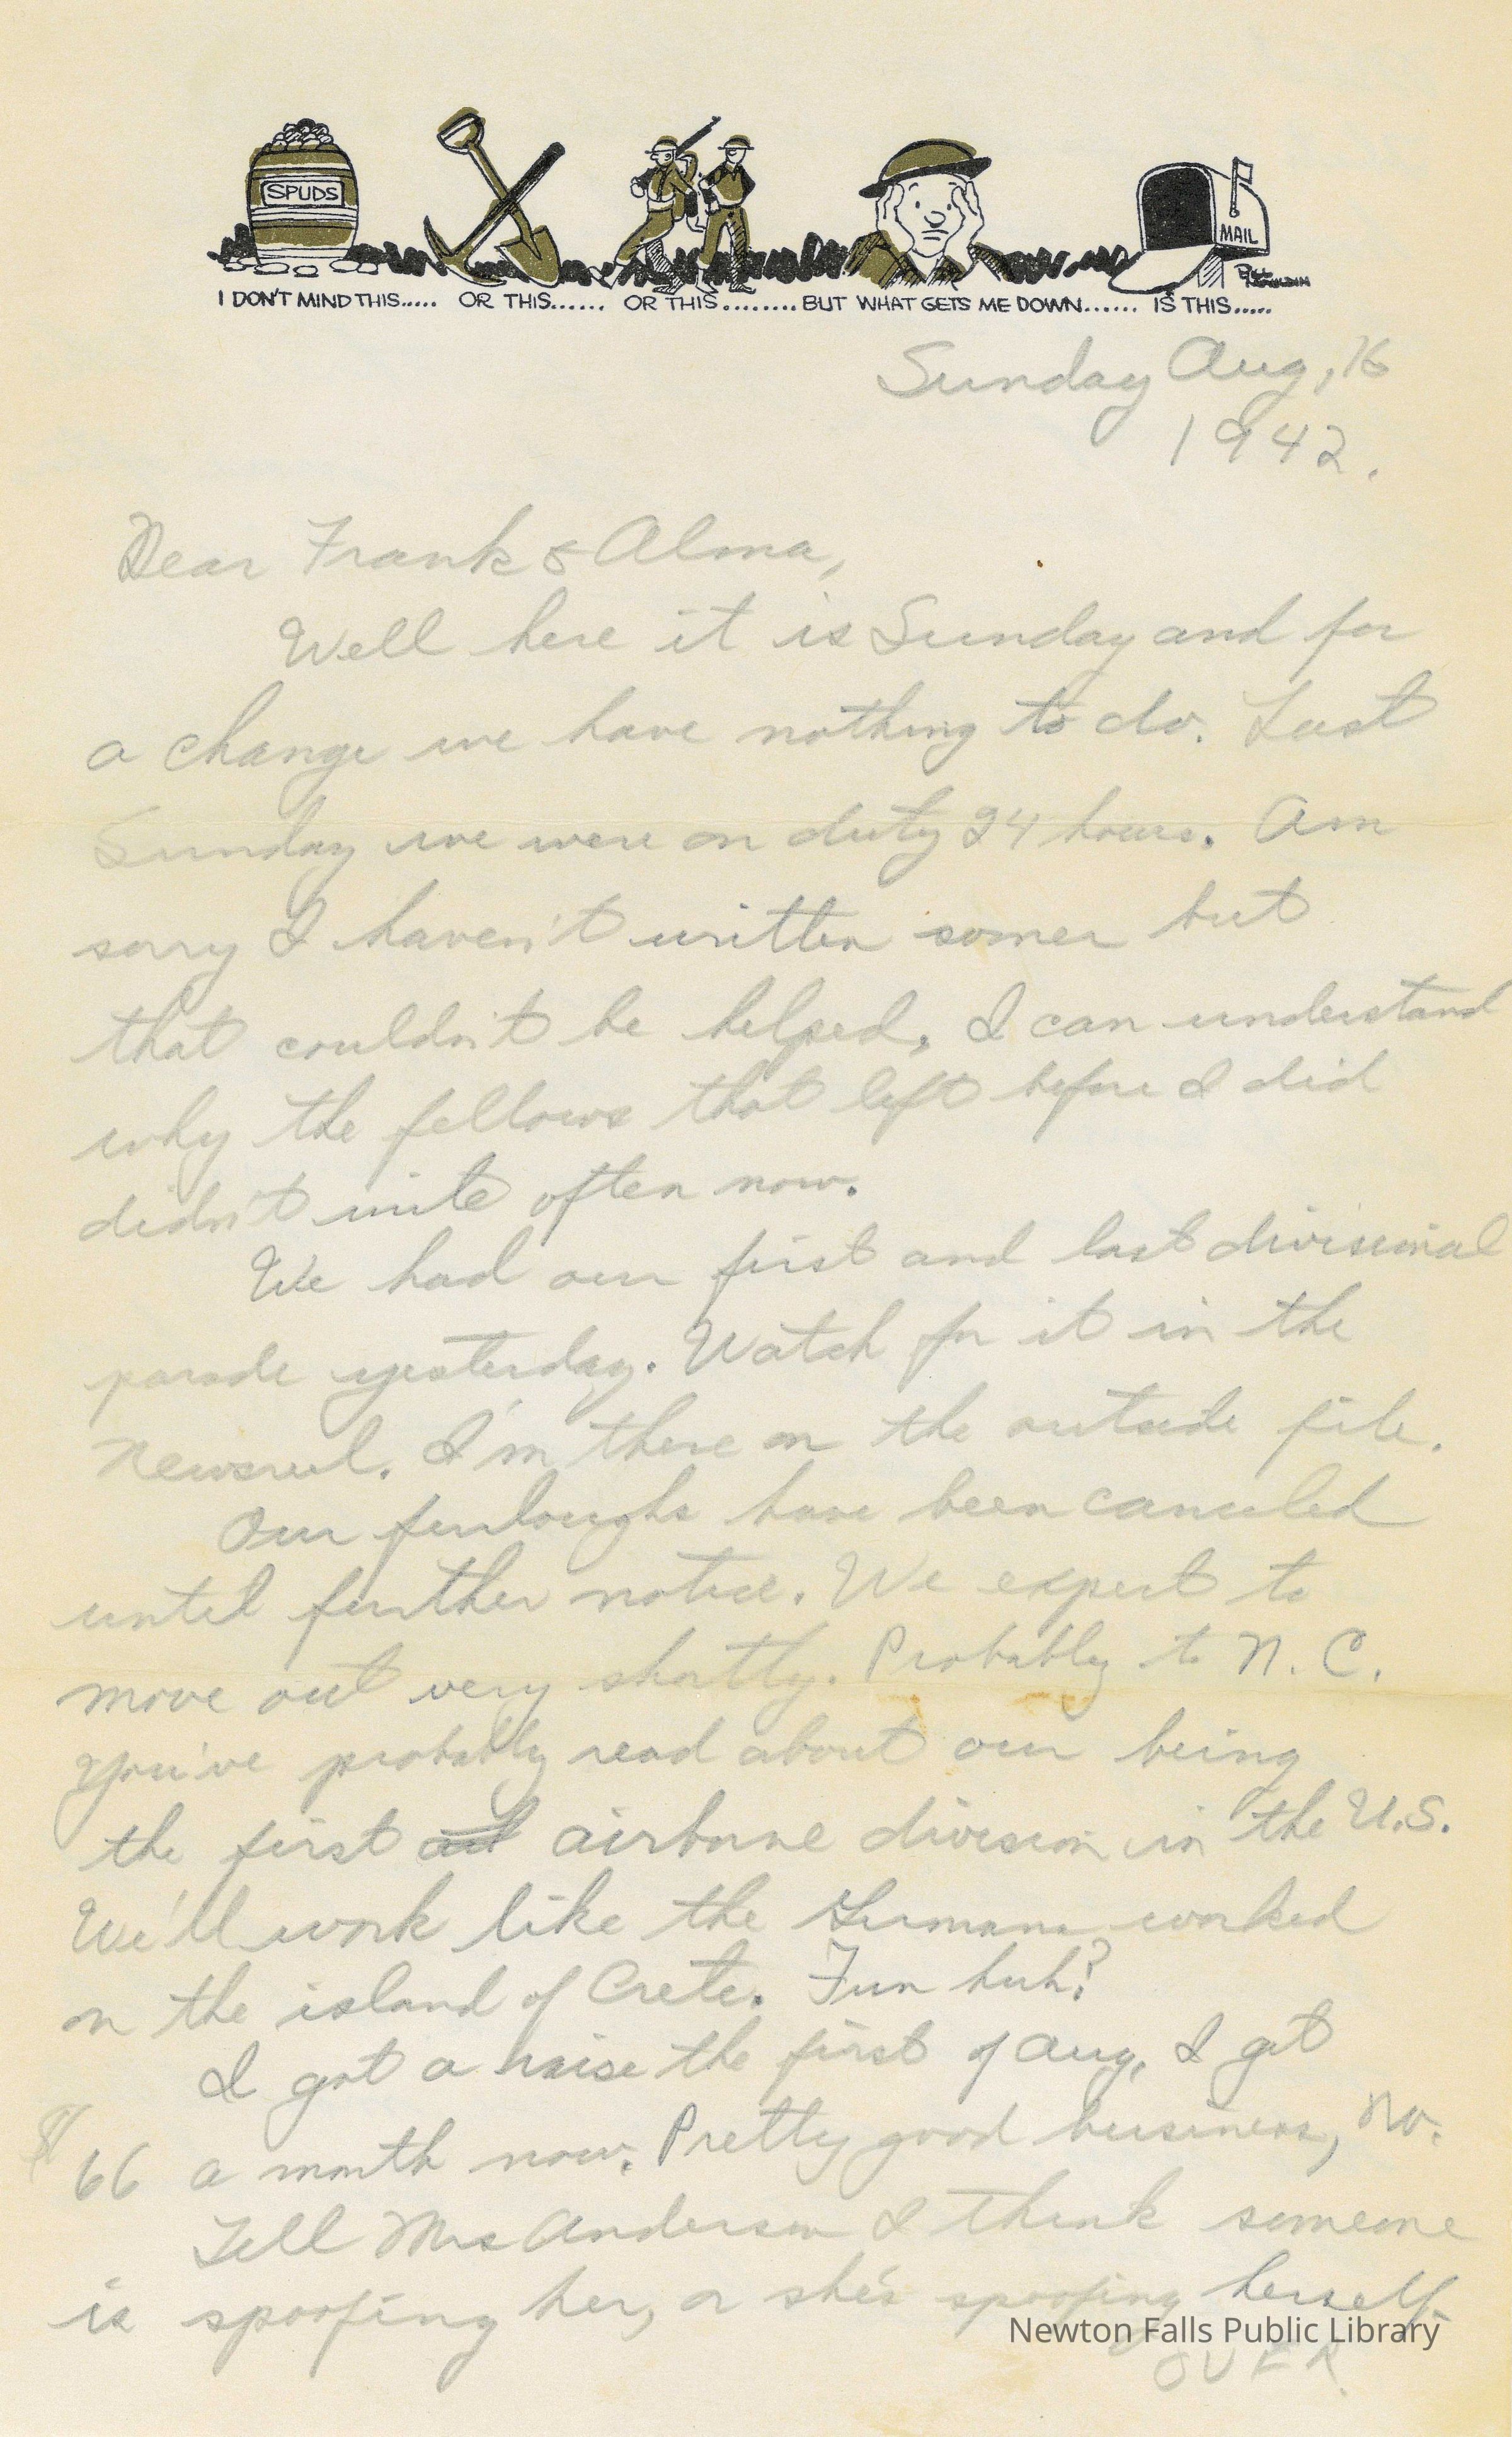 SPUDS
MAIL
BILL MAULDIN
I DON'T MIND THIS..... OR THIS...... OR THIS......... BUT WHAT GETS ME DOWN...... IS THIS.....
Sunday Aug, 16
1942.
Dear Frank & Alma,
Well here it is Sunday and for
a change we have nothing to do. Last
Sunday we were on duty 24 hours. Am
sorry I haven't written sooner but
that couldn't be helped. I can understand
why the fellows that left before I did
didn't write often now.
We had our first and last divisional
parade yesterday. Watch for it in the
Newsreel. I'm there on the outside file.
Our furloughs have been canceled
until further notice. We expect to
move out very shortly. Probably to N. C.
You've probably read about our being
the first airborne division in the U.S.
We'll work like the Germans worked
on the island of Crete. Fun huh?
I got a raise the first of Aug, I get
$66 a month now. Pretty good business, no.
Tell Mrs Anderson I think someone
is spoofing her, or she's spoofing herself.
Newton Falls Public Library
OVER.